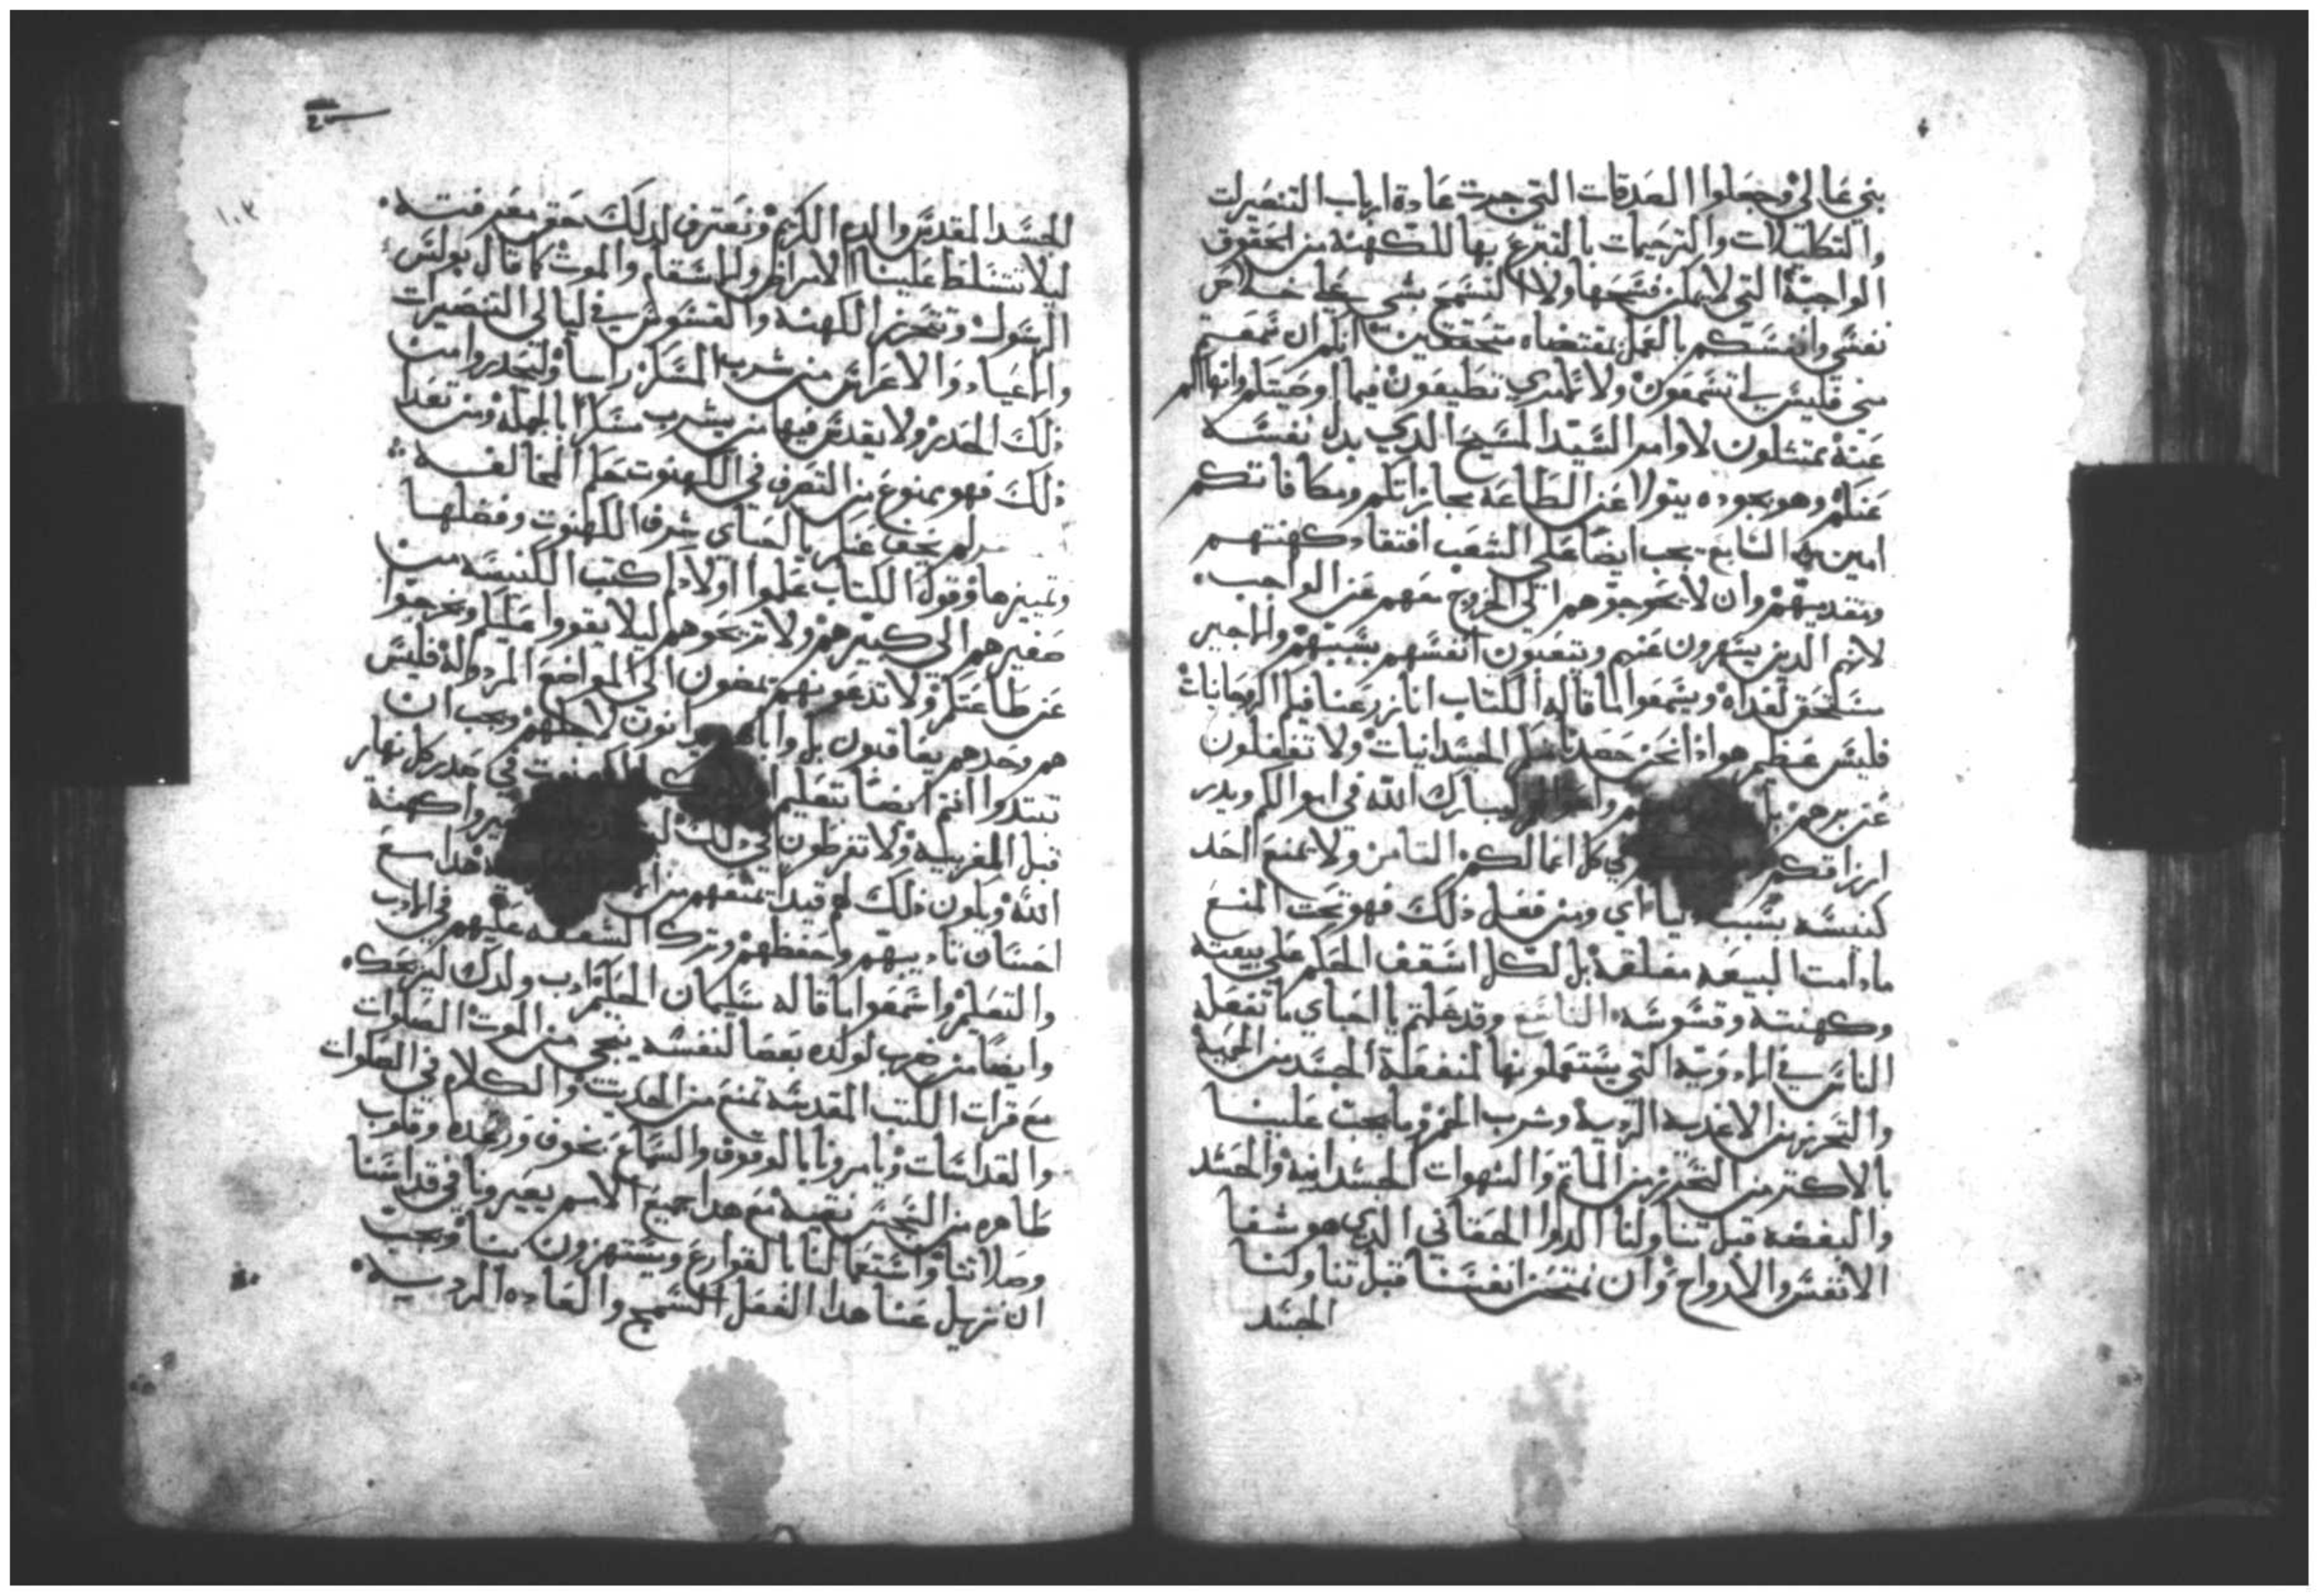 بني غالي وجعلوا الصدقات التي جرت عادة ارباب التنصيرات
والتكليلات والترحيمات بالتبرع بها للكهنة من الحقوق
الواجبة التي لا يمكن فسحها ولا التسمح بشي
نفسي وانفسكم بالعمل بمقتضاه متحققين انكم ان سمعتم
مني فليس لي تسمعون ولا لامري تطيعون فيما اوصيتكم وانهاكم
عنه تمتثلون لاوامر السيد المسيح الدي بدل نفسه
عنكم وهو بجوده يتولا عن الطاعه مجازاتكم ومكافاتكم
امين السابع يجب ايضا على الشعب افتقاد كهنتهم
وتقدمتهم وان لا يحوجوهم الى الخروج معهم عن الواجب
لانهم الدين يسهرون عنهم ويتعبون انفسهم بسببهم
ويسمعوا لما قاله الكتاب انا زرعنا فيكم الروحانيات
فليس عظيم هو ادا نحن حصدنا منكم الجسدانيات ولا تغفلون
عن برهم يبارك الله في اموالكم ويدر
ارزاقكم في كل اعمالكم الثامن ولا يمنع احد
كنيسه بسبب ومن فعل ذلك فهو تحت المنع
ما دامت البيعه مغلقة بل لكل اسقف الحكم على بيعته
وكهنته وقسوسه التاسع وقد علمتم يا احباي ما تفعله
الناس في الادوية التي يستعملونها لمنفعة الجسد من الحمية
والتحرز من الاغدية الردية وشرب الخمر وما يجب علينا
بالاكتر من التحرز من الماتم والشهوات الجسدانية والحسد
والبغضه قبل تناولنا الدوا الحقاني الدي هو شفا
الانفس والارواح وان نمتحن انفسنا قبل تناولنا
الجسد
١٠٢
الجسد المقدس والدم الكريم ونعترف لدلك حق معرفته
ليلا تتسلط علينا الامراض والاسقام والموت كما قال بولس
الرسول وتتحرز الكهنه والقسوس في ليالي التنصيرات
والاعياد والاعراس من شرب المسكر راسا وليحدروا من
ذلك الحدر ولا يقدس فيها من يشرب مسكرا بالجمله ومن تعدا
ذلك فهو ممنوع من التصرف في الكهنوت بحكم المخالفه
لم يخف عنكم يا احباي شرف الكهنوت وفضلها
وتمييزها وقول الكتاب علموا اولادكم كتب الكنيسه من
صغيرهم الى كبيرهم ولا تزيحوهم ليلا يقووا عليكم ويخرجوا
عن طاعتكم ولا تدعونهم يمضون الى المواضع المردوله فليس
هم وحدهم يعاقبون بل لاجلهم ويجب ان
تبتدوا انتم ايضا بتعليم في كل نهار
قبل المغربية ولا تفرطون في ذلك
الله ويكون ذلك لهم قيدا يمنعهم من
احسان تاديبهم وحفظهم وترك الشفقه عليهم في الادب
والتعليم واسمعوا ما قاله سليمان الحكيم ادب ولدك ليريحك
وايضا من ضرب لولده بعصا لنفسه ينجي من الموت الصلوات
مع قرات الكتب المقدسه تمنع من الحديث والكلام في الصلوات
والقداسات ويامرونا بالوقوف والسماع بخوف ورعده وقلوب
طاهره من النجس نقية مع هدا جميع الامم يعيرونا في قداسنا
وصلاتنا واستعمالنا بالقوارع ويستهزون بنا ويجب
ان نزيل عنا هدا الفعل السمج والعاده الرديه